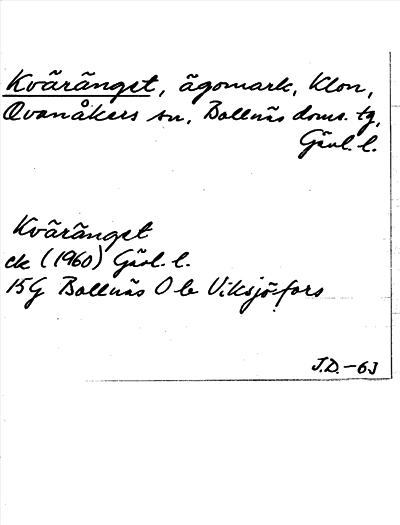 Kväränget, ägomark, Klon,
Ovanåkers sn, Bollnäs doms. tg,
Gävl. l.
Kväränget
ek (1960) Gävl. l.
15G Bollnäs O b Viksjöfors
J.D. -63